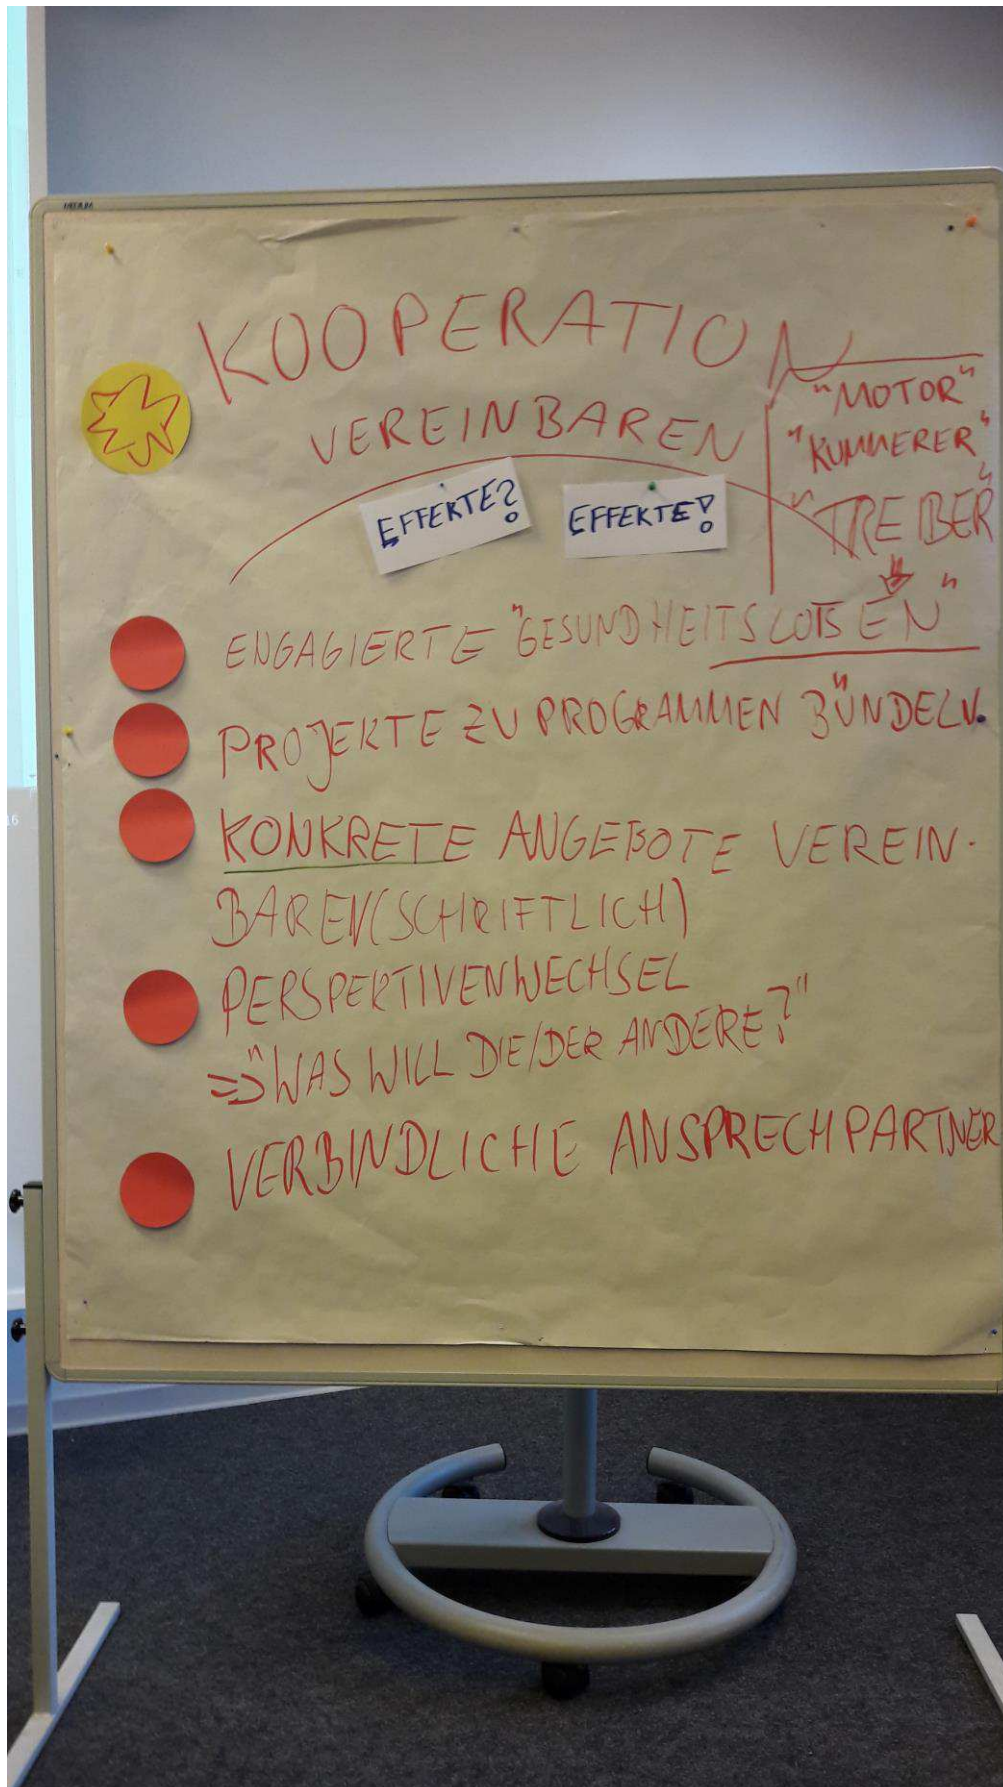 KOOPERATION
VEREINBAREN
"MOTOR"
"KÜMMERER"
"TREIBER"
EFFEKTE?
EFFEKTE!
ENGAGIERTE "GESUNDHEITSLOTSEN"
PROJEKTE ZU PROGRAMMEN BÜNDELN.
KONKRETE ANGEBOTE VEREIN-
BAREN (SCHRIFTLICH)
PERSPEKTIVENWECHSEL
=> "WAS WILL DIE/DER ANDERE?"
VERBINDLICHE ANSPRECHPARTNER
16